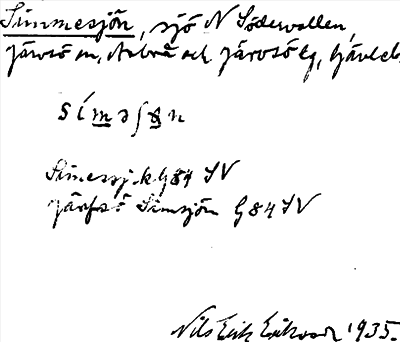 Simmesjön, sjö N Södervallen,
Järvsö sn, Arbrå och Järvsö tg, Gävleb.
Simessj. k G84 SV
Järfsö Simsjön G84 SV
Nils Erik Eriksson 1935.